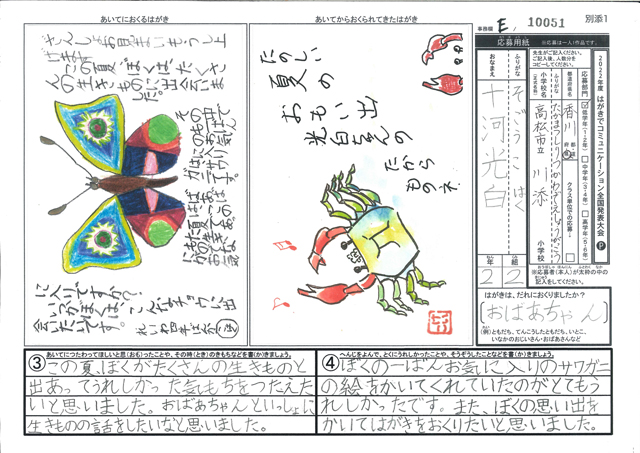 別添1
事務局 E, 10051
2022年度 はがきでコミュニケーション全国発表大会 P
応募用紙
※応募は一人1作品です。
応募部門
低学年(1・2年)
中学年(3・4年)
高学年(5・6年)
都道府県名
香川
ふりがな
小学校名
高松市立 川添 小学校
ふりがな
おなまえ
そごう こはく
十河光白
2年
2組
※応募者(本人)が太枠の中の
記入をしてください。
はがきは、だれにおくりましたか?
(おばあちゃん)
(例)ともだち、てんこうしたともだち、いとこ、
いなかのおじいさん・おばあさんなど
あいてからおくられてきたはがき
たのしい
夏の
おもい出
光白ちゃんの
たから
もの ネ
あいてにおくるはがき
ざんしょお見まいもうし上
げます。
この夏、ぼくはたくさ
んの生きものに出会いま
した。
に入りですか?
いつかぼくは、
こんなチョウに出
会いたいです。
③ あいてにつたわってほしいと思(おも)ったことや、その時(とき)のきもちなどを書(か)きましょう。
この夏、ぼくがたくさんの生きものと
出あってうれしかった気もちをつたえた
いと思いました。おばあちゃんといっしょに
生きものの話をしたいなと思いました。
④ へんじをよんで、とくにうれしかったことや、そうぞうしたことなどを書(か)きましょう。
ぼくの一ばんお気に入りのサワガニ
の絵をかいてくれていたのがとてもう
れしかったです。また、ぼくの思い出を
かいてはがきをおくりたいと思いました。